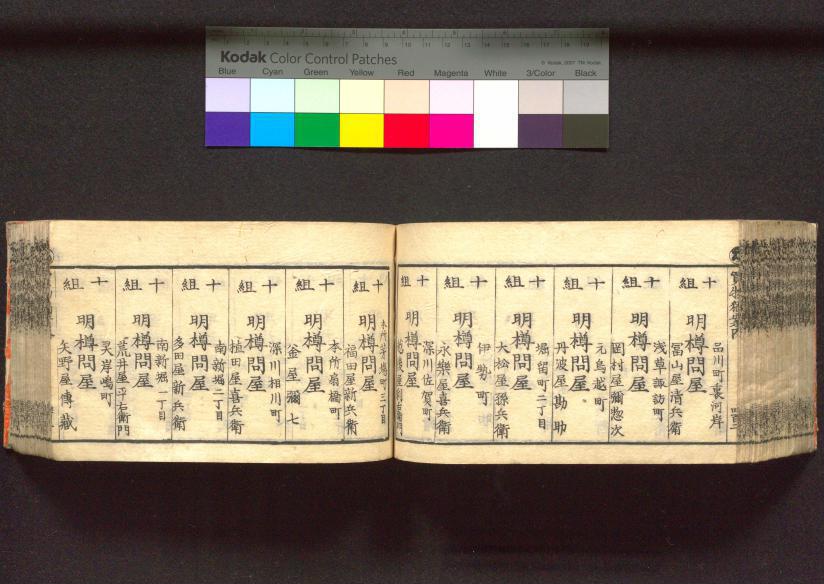 Kodak Color Control Patches
© Kodak, 2007 TM: Kodak
Blue Cyan Green Yellow Red Magenta White 3/Color Black
十組
明樽問屋
品川町裏河岸
冨山屋清兵衛
十組
明樽問屋
浅草諏訪町
岡村屋彌惣次
十組
明樽問屋
元鳥越町
丹波屋勘助
十組
明樽問屋
堀留町二丁目
大松屋孫兵衛
十組
明樽問屋
伊勢町
永樂屋喜兵衛
十組
明樽問屋
深川佐賀町
十組
明樽問屋
本所茅場町三丁目
福田屋新兵衛
十組
明樽問屋
本所扇橋町
釜屋彌七
十組
明樽問屋
深川相川町
植田屋喜兵衛
十組
明樽問屋
南新堀二丁目
多田屋新兵衛
十組
明樽問屋
南新堀一丁目
荒井屋平右衛門
十組
明樽問屋
灵岸嶋町
矢野屋傳藏